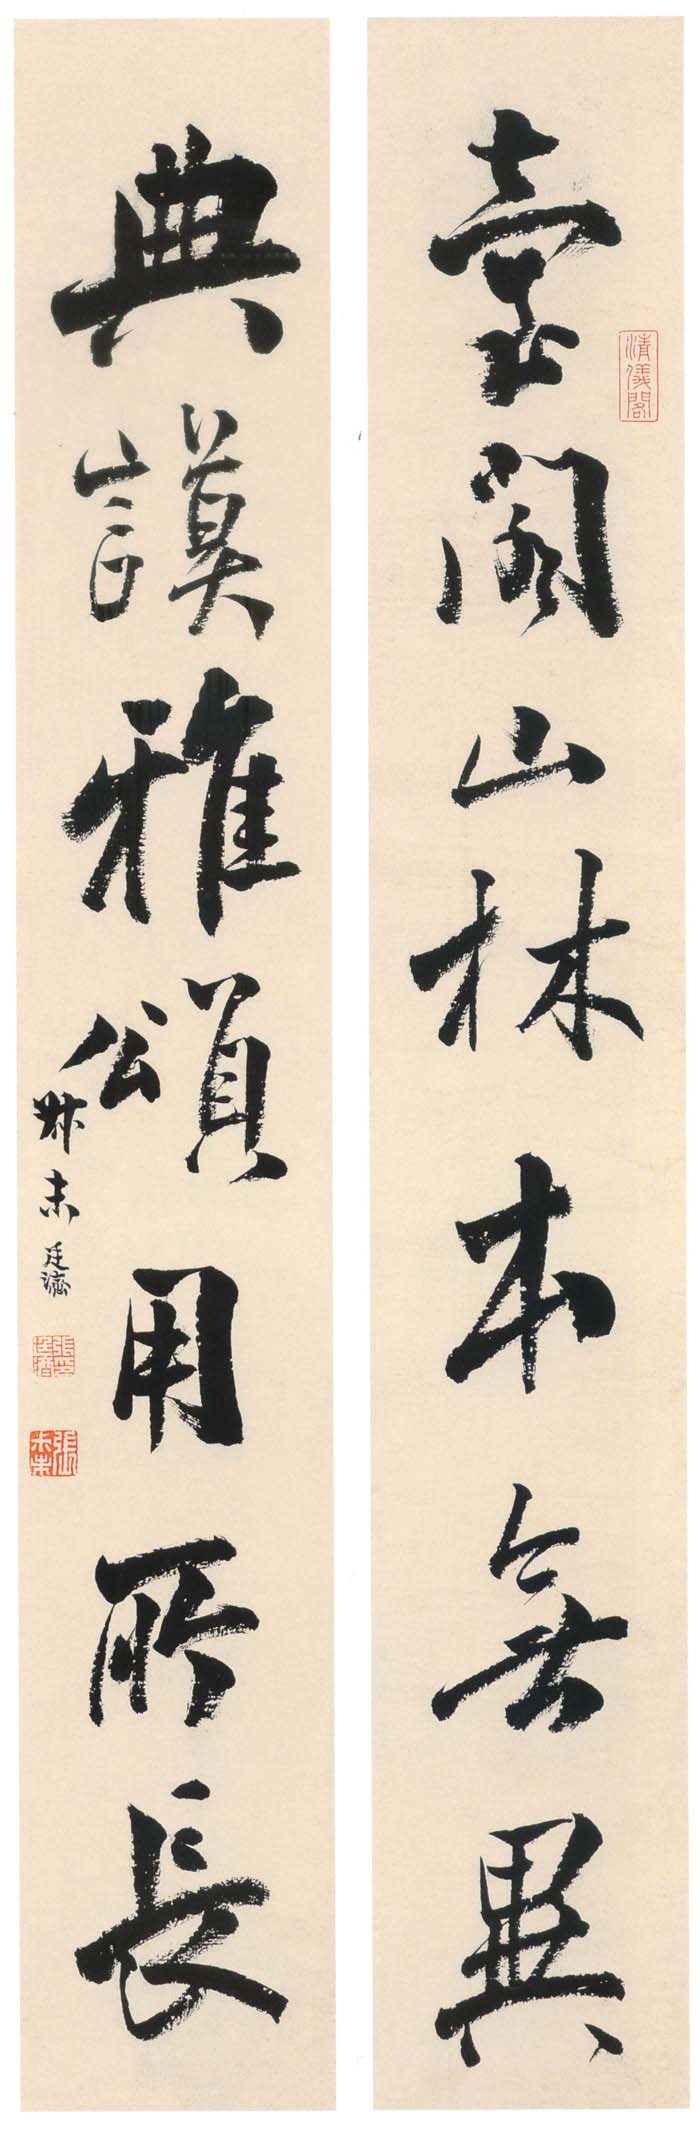 臺閣山林本無異
清儀閣
典謨雅頌用所長
叔未廷濟
張廷濟印
張叔未